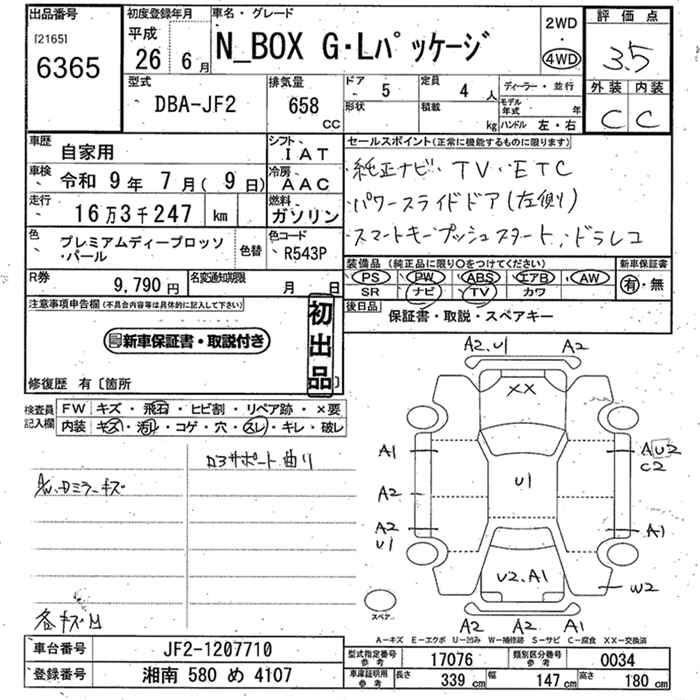 出品番号
[2165]
6365
初度登録年月
平成
26 6月
車名・グレード
N_BOX G・Lパッケージ
2WD
・
4WD
評価点
3.5
外装 内装
C C
型式
DBA-JF2
排気量
658
cc
ドア
5
定員
4 人
形状
積載
kg
ディーラー・並行
モデル年式 年
ハンドル 左・右
車歴
自家用
シフト
IAT
車検
令和 9年 7月( 9日)
冷房
AAC
走行
16万3千247 km
燃料
ガソリン
色
プレミアムディープロッソ
・パール
色替
色コード
R543P
R券
9,790 円
名変通知期限
月 日
セールスポイント(正常に機能するものに限ります)
・純正ナビ・TV・ETC
・パワースライドドア(左側)
・スマートキープッシュスタート、ドラレコ
装備品 (純正品に限り○をつけてください)
新車保証書
PS PW ABS エアB AW
SR ナビ TV カワ
有・無
後日品
保証書・取説・スペアキー
注意事項申告欄(不具合内容等は具体的に記入して下さい)
新車保証書・取説付き
初出品
修復歴 有〔箇所 〕
検査員
記入欄
FW キズ・飛石・ヒビ割・リペア跡・×要
内装 キズ・汚レ・コゲ・穴・スレ・キレ・破レ
ロアサポート曲り
A2.U1 A2
XX
A1
U1
A2
A2
U1
AU2
C2
A1
U2.A1
W2
スペア
A2 A2 A1
A―キズ E―エクボ U―凹み W―補修跡 S―サビ C―腐食 XX―交換済
車台番号
JF2-1207710
登録番号
湘南 580 め 4107
型式指定番号
参考
17076
類別区分番号
参考
0034
車庫証明用
参考
長さ
339 cm
幅
147 cm
高さ
180 cm